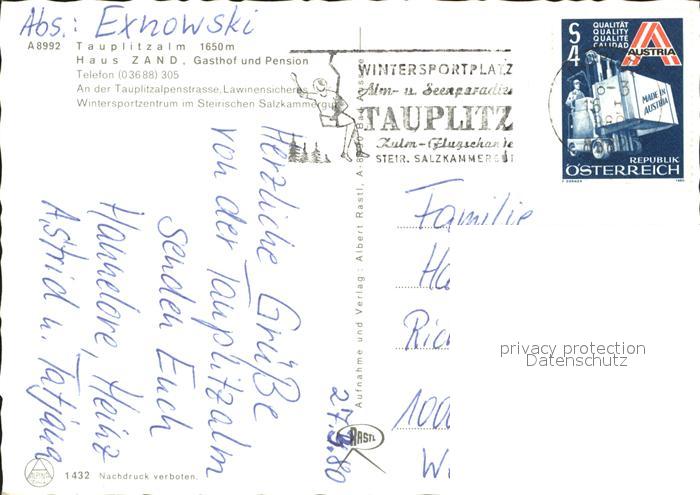 Abs.: Exnowski
A8992 Tauplitzalm 1650m
Haus ZAND, Gasthof und Pension
Telefon (03688) 305
An der Tauplitzalpenstrasse, Lawinensicheres
Wintersportzentrum im Steirischen Salzkammergut
WINTERSPORTPLATZ
Alm- u. Seenparadies
TAUPLITZ
Kulm-Flugschanze
STEIR. SALZKAMMERGUT
S 4
QUALITÄT
QUALITY
QUALITE
CALIDAD
AUSTRIA
MADE IN AUSTRIA
REPUBLIK
ÖSTERREICH
1980
Herzliche Grüße
von der Tauplitzalm
senden Euch
Hannelore, Heinz
Astrid u. Tatjana
27.3.80
Aufnahme und Verlag: Albert Rastl, A-8990 Bad Aussee
RASTL
Familie
Ha
Ric
100
W
privacy protection
Datenschutz
1432 Nachdruck verboten.